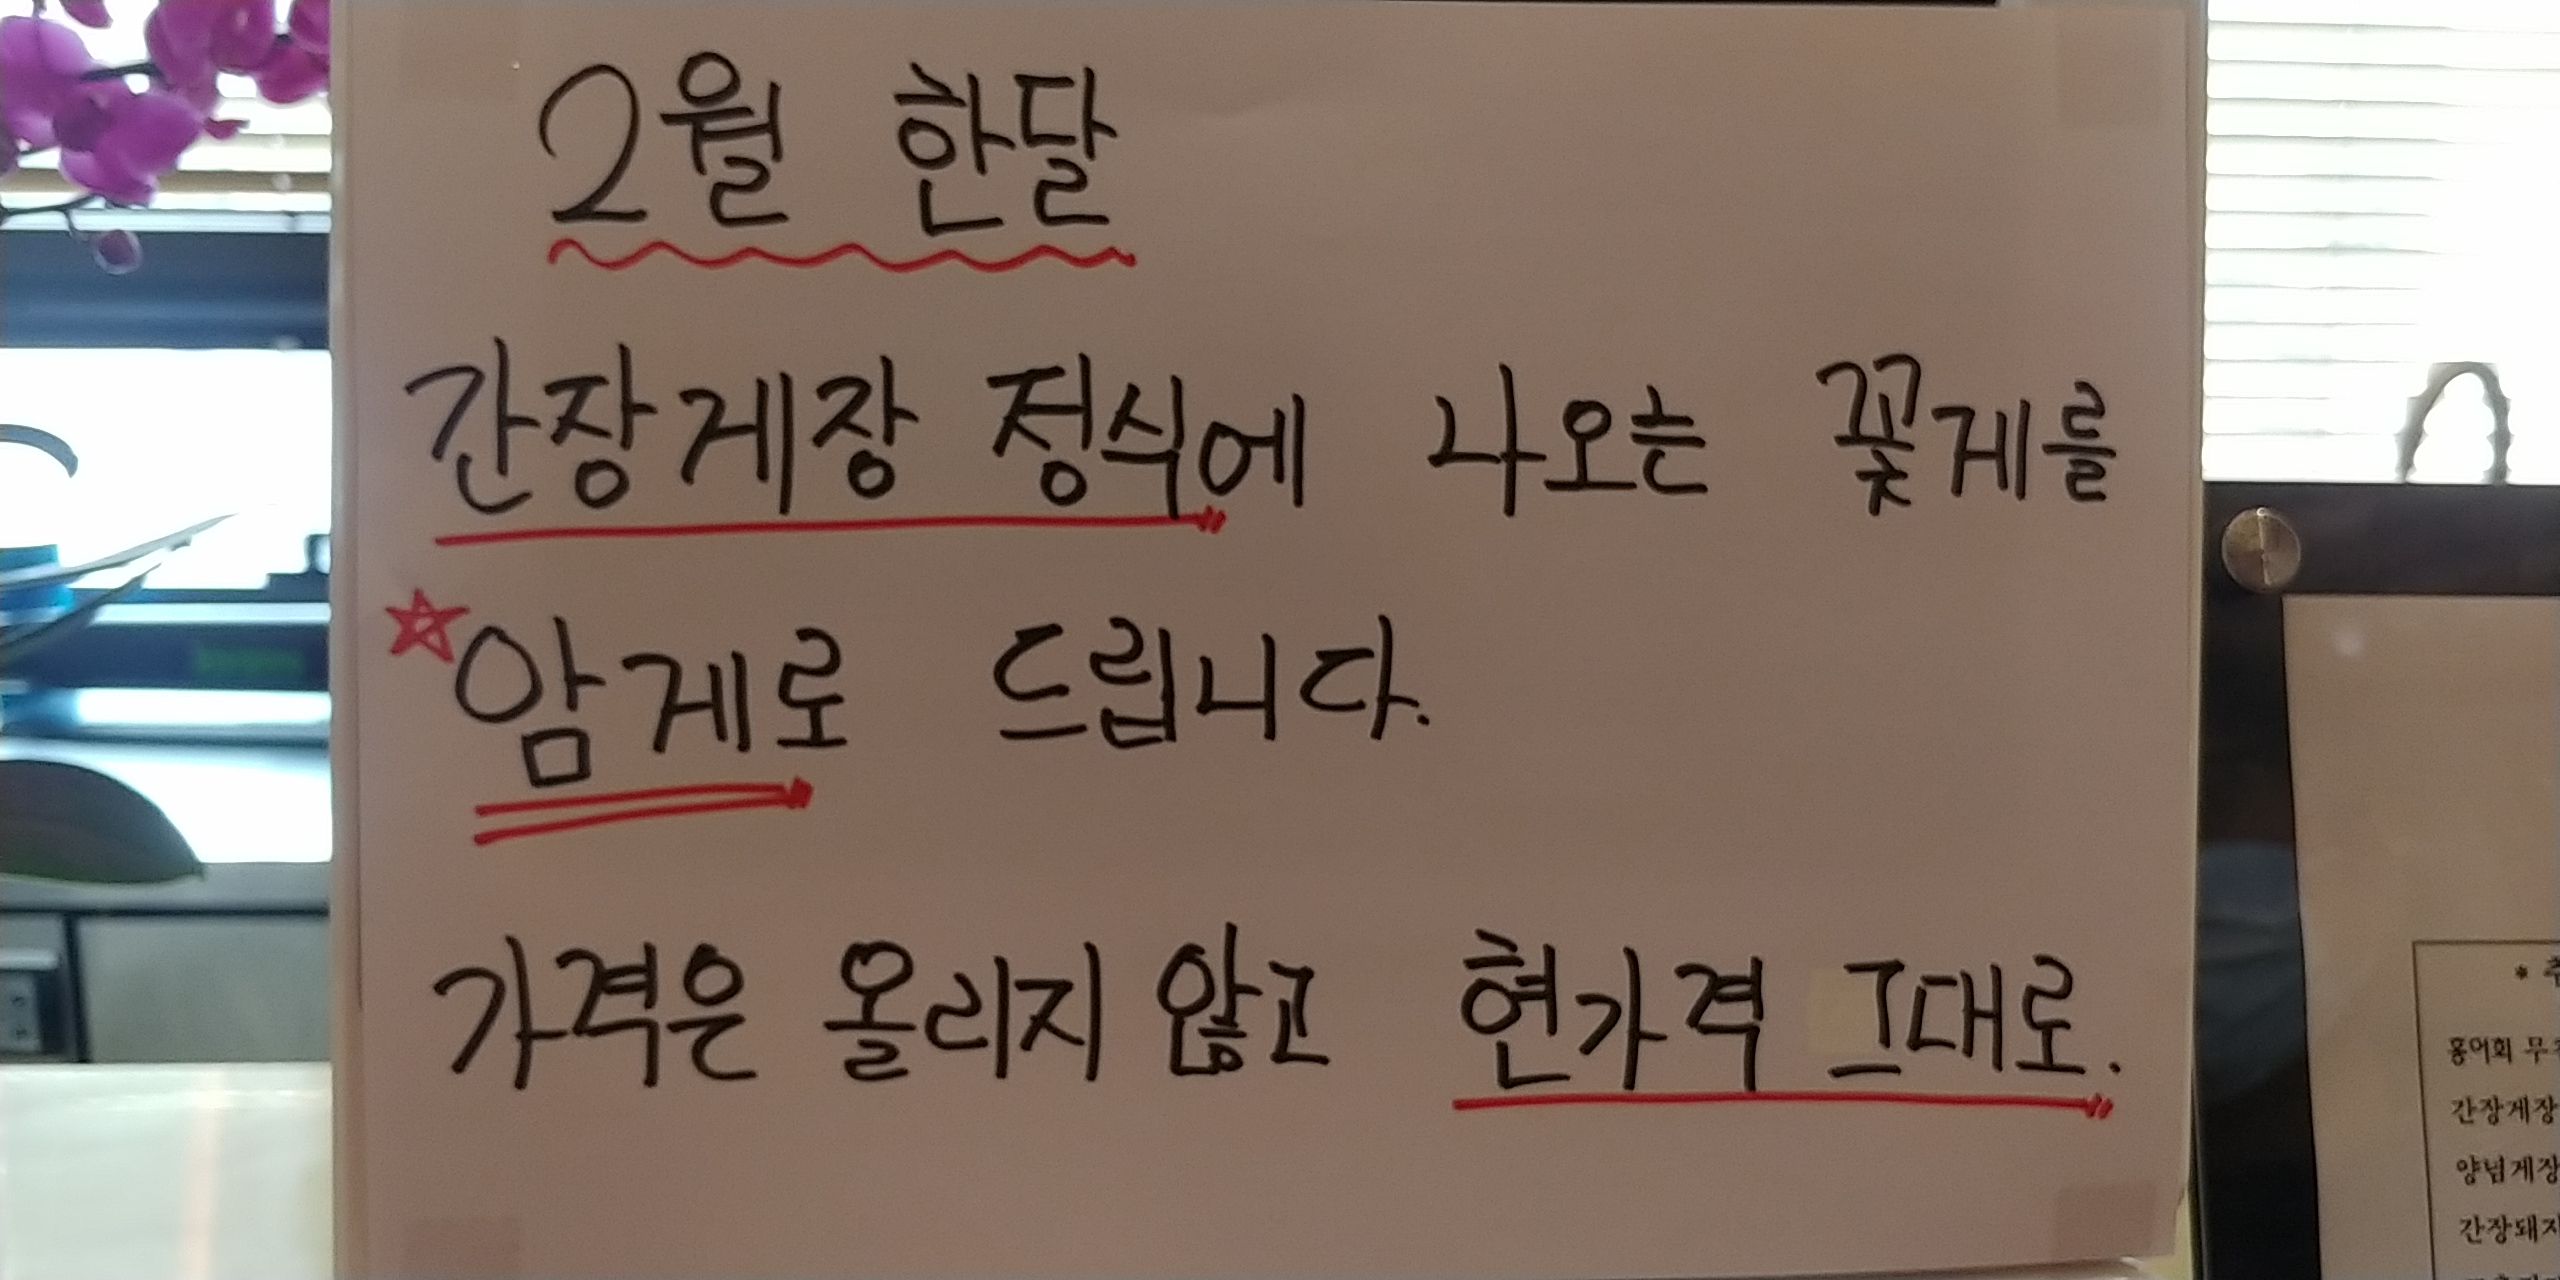 2월 한달
간장게장 정식에 나오는 꽃게를
암게로 드립니다.
가격은 올리지 않고 현가격 그대로.
홍어회
간장게장
양념게장